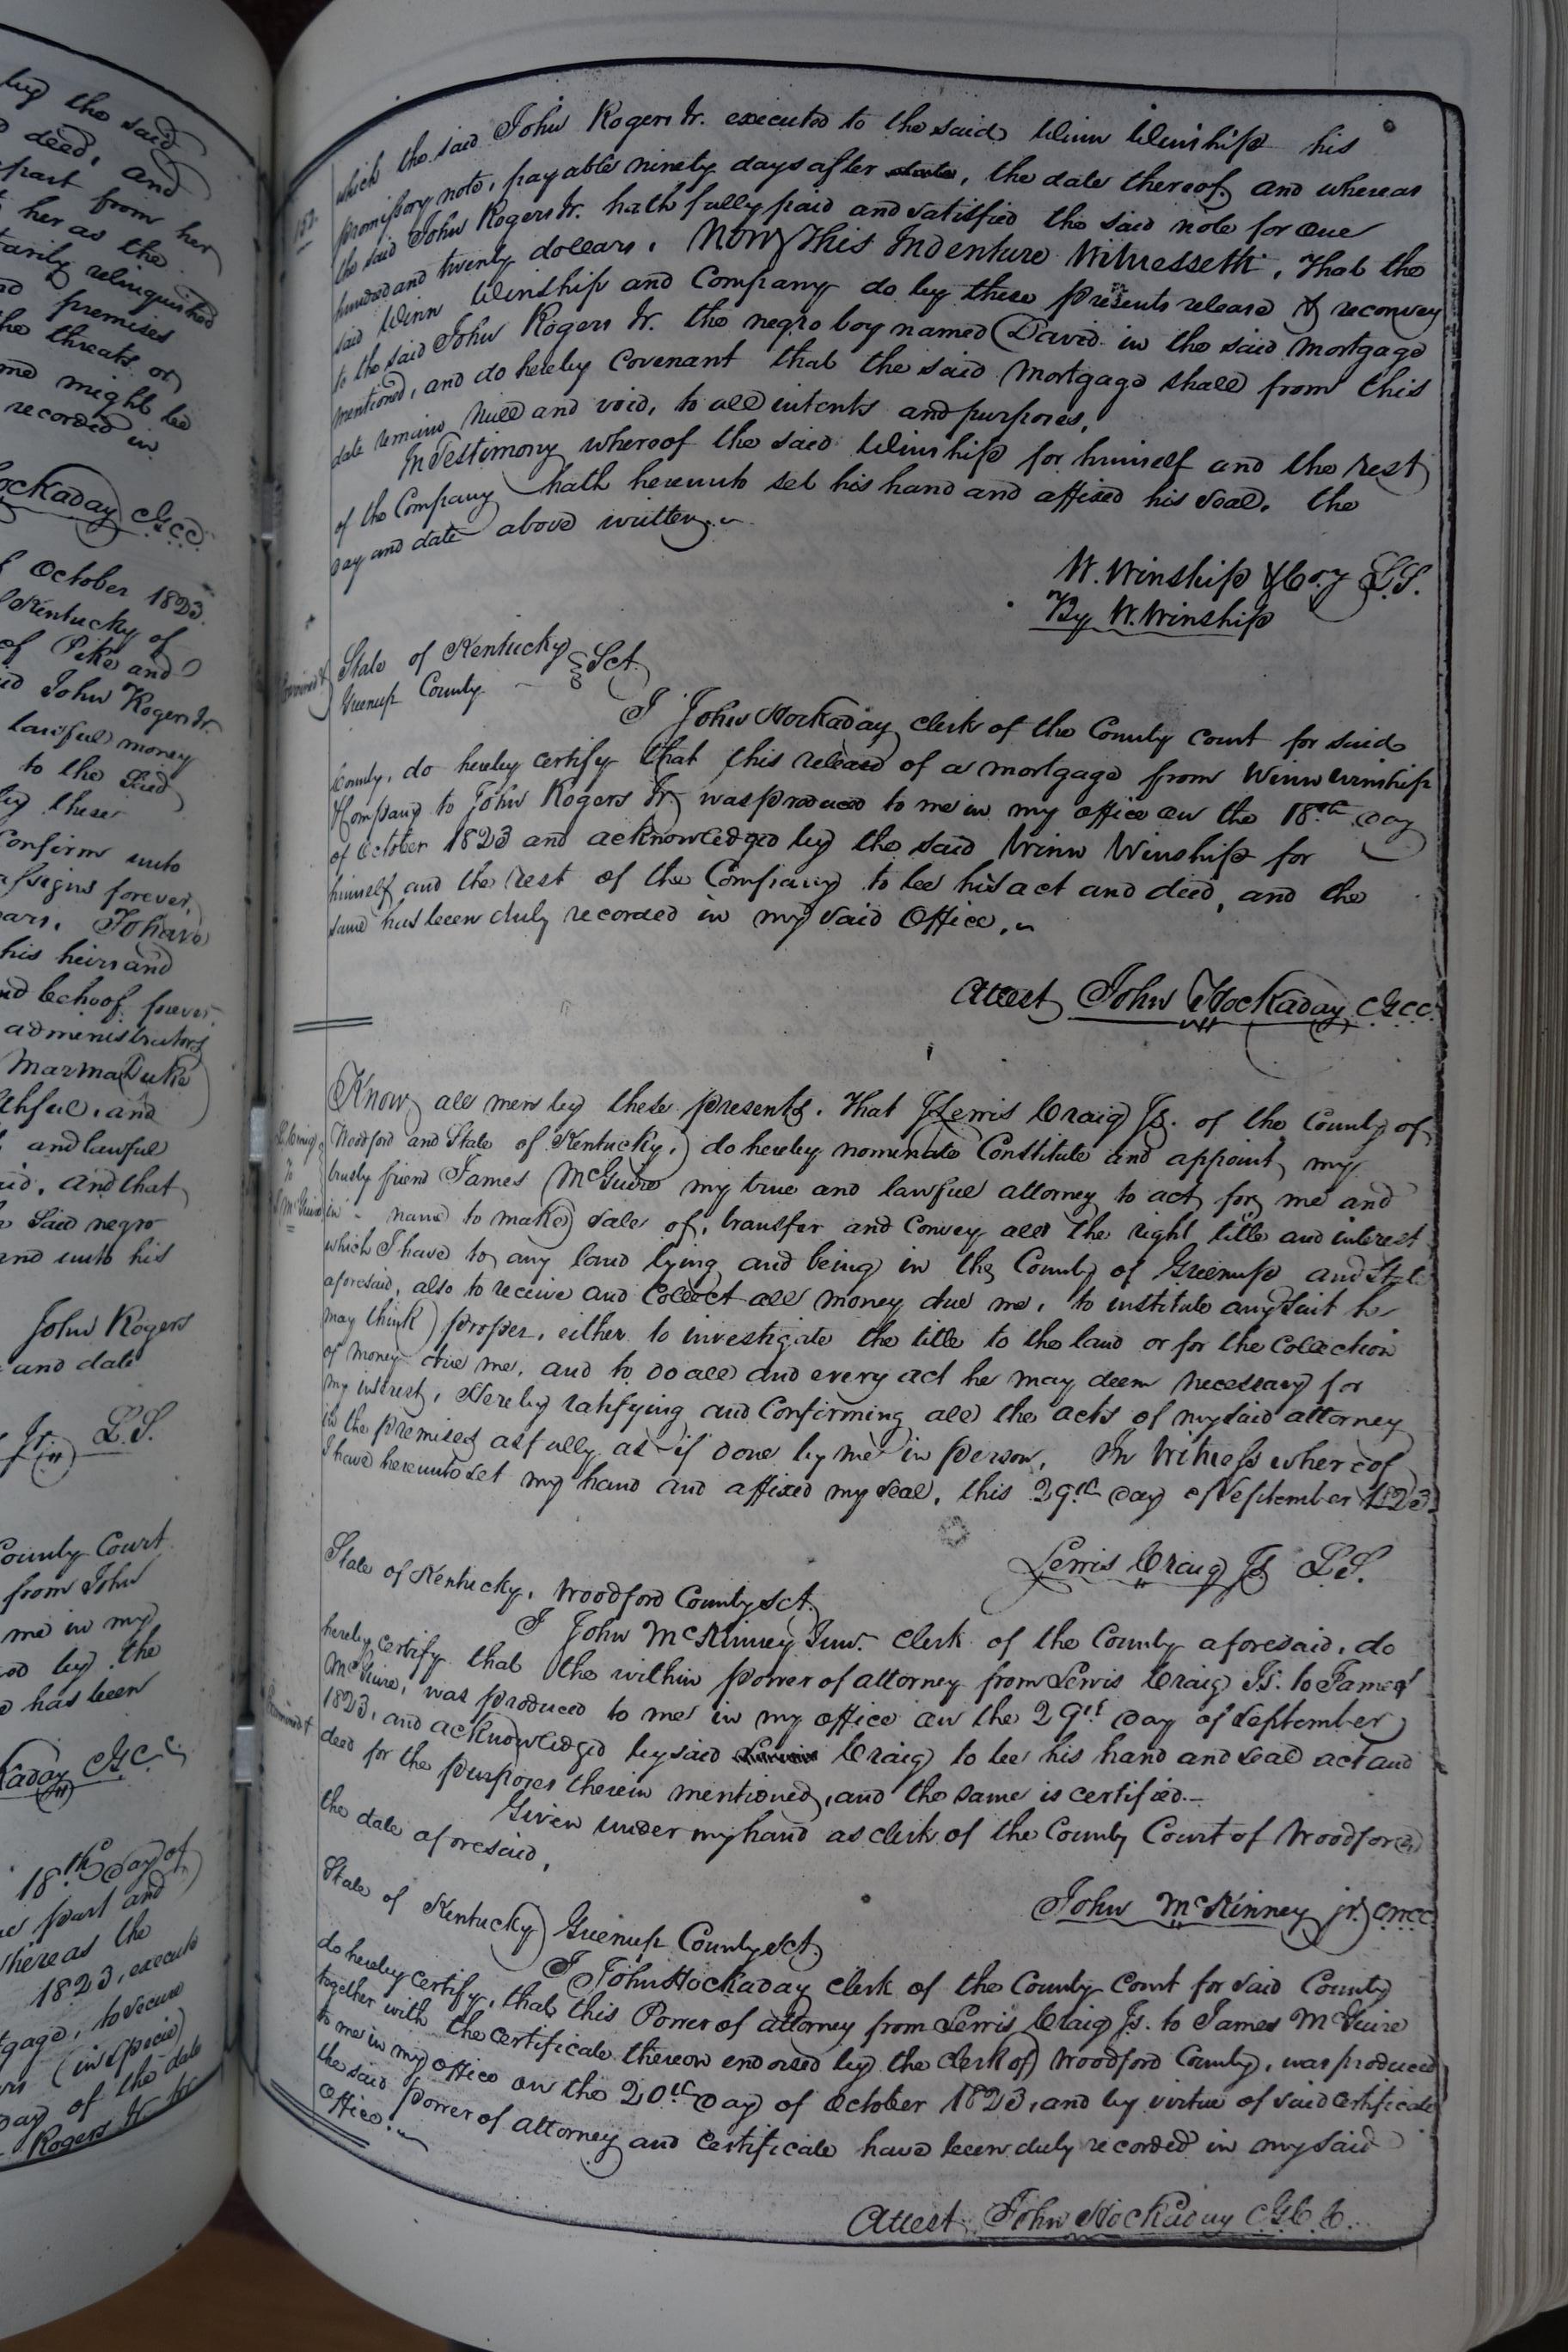 by the said
deed, and
part from her
her as the
tarily relinquished
premises
the threats or
me might be
recorded in
ockaday C.G.C.C.
October 1823.
Kentucky of
of Pike and
John Rogers Jr.
lawful money
to the said
by these
Confirm unto
assigns forever,
ars. To have
his heirs and
nd behoof forever
administrators
Marmaduke
thful, and
and lawful
id, and that
said negro
and unto his
John Rogers
and date
Jr L.S.
County Court
from John
me in my
by the
has been
kaday C.G.C.C.
18th day of
part and
whereas the
1823, execute
gage, to secure
(in specie)
day of the date
Rogers Jr by
152.
which the said John Rogers Jr. executed to the said Winn Winship his
promissory note, payable ninety days after date, the date thereof, and whereas
the said John Rogers Jr. hath fully paid and satisfied the said note for one
hundred and twenty dollars. Now This Indenture Witnesseth, That the
said Winn Winship and Company do by these presents release & reconvey
to the said John Rogers Jr. the negro boy named David in the said mortgage
mentioned, and do hereby covenant that the said mortgage shall from this
date remain null and void, to all intents and purposes.
In Testimony whereof the said Winship for himself and the rest
of the Company hath hereunto set his hand and affixed his seal. the
day and date above written.
W. Winship & Coy L.S.
By W. Winship
State of Kentucky Sct.
Greenup County
I John Hockaday clerk of the County court for said
County, do hereby certify that this release of a mortgage from Winn Winship
& Company to John Rogers Jr. was produced to me in my office on the 18th day
of October 1823 and acknowledged by the said Winn Winship for
himself and the rest of the Company to be his act and deed, and the
same has been duly recorded in my said Office.
Attest John Hockaday C.G.C.C.
Know all men by these presents. That I Lewis Craig Js. of the County of
Woodford and State of Kentucky, do hereby nominate Constitute and appoint my
trusty friend James McGuire my true and lawful attorney to act for me and
in - name to make sale of, transfer and Convey all the right title and interest
which I have to any land lying and being in the County of Greenup and State
aforesaid, also to receive and Collect all money due me, to institute any suit he
may think proper, either to investigate the title to the land or for the Collection
of money due me, and to do all and every act he may deem necessary for
my interest, Hereby ratifying and Confirming all the acts of my said attorney
in the premises as fully as if done by me in person. In Witness whereof
I have hereunto set my hand and affixed my seal, this 29th day of September 1823.
Lewis Craig Js L.S.
State of Kentucky, Woodford County Sct.
I John McKinney Jun. clerk of the County aforesaid, do
hereby certify that the within power of attorney from Lewis Craig Js. to James
McGuire, was produced to me in my office on the 29th day of September
1823, and acknowledged by said Craig to be his hand and seal act and
deed for the purposes therein mentioned, and the same is certified.-
Given under my hand as clerk of the County Court of Woodford
the date aforesaid,
John McKinney jr.
State of Kentucky Greenup County Sct.
I John Hockaday clerk of the County Court for said County
do hereby certify, that this Power of attorney from Lewis Craig Js. to James McGuire
together with the certificate thereon endorsed by the clerk of Woodford County, was produced
to me in my office on the 20th day of October 1823, and by virtue of said certificate
the said power of attorney and certificate have been duly recorded in my said
Office.
Attest John Hockaday C.G.C.C.